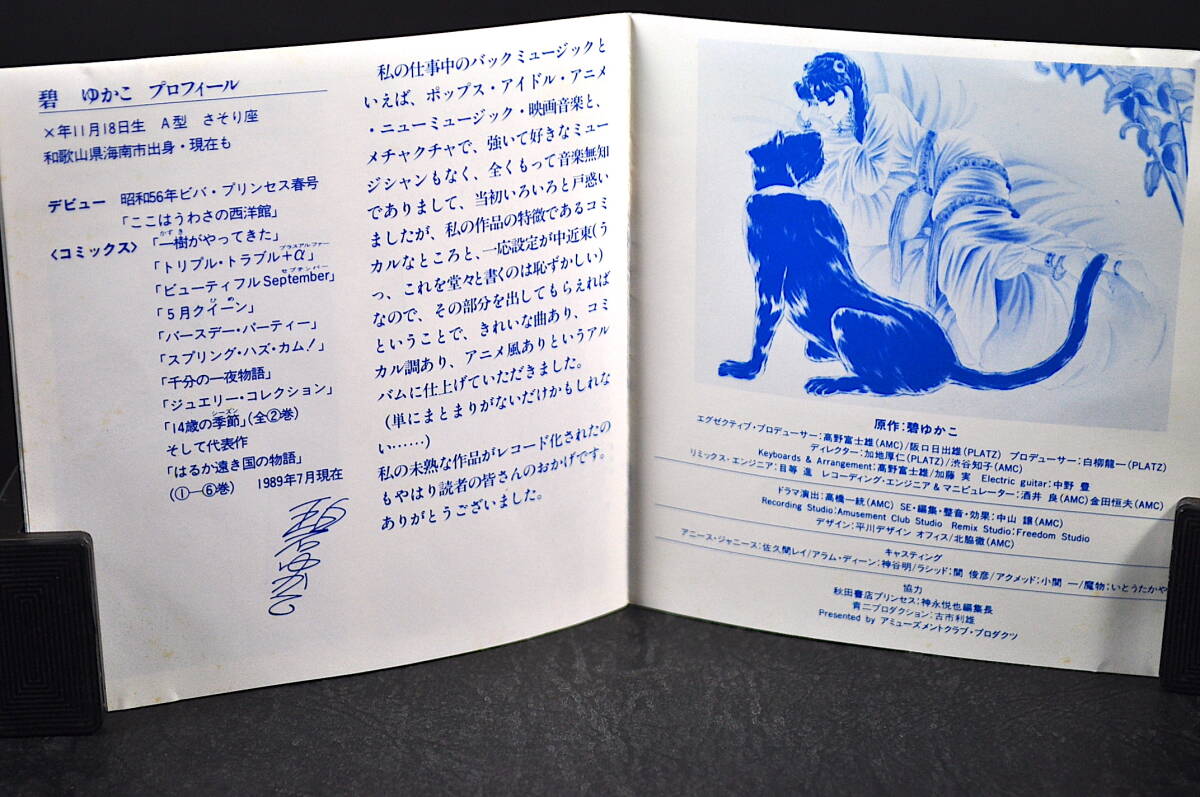 碧 ゆかこ プロフィール
×年11月18日生 A型 さそり座
和歌山県海南市出身・現在も
デビュー 昭和56年ビバ・プリンセス春号
「ここはうわさの西洋館」
〈コミックス〉「一樹がやってきた」
「トリプル・トラブル+α」
「ビューティフルSeptember」
「5月クイーン」
「バースデー・パーティー」
「スプリング・ハズ・カム!」
「千分の一夜物語」
「ジュエリー・コレクション」
「14歳の季節」(全②巻)
そして代表作
「はるか遠き国の物語」
(①―⑥巻) 1989年7月現在
碧ゆかこ
私の仕事中のバックミュージックと
いえば、ポップス・アイドル・アニメ
・ニューミュージック・映画音楽と、
メチャクチャで、強いて好きなミュー
ジシャンもなく、全くもって音楽無知
でありまして、当初いろいろと戸惑い
ましたが、私の作品の特徴であるコミ
カルなところと、一応設定が中近東(う
っ、これを堂々と書くのは恥ずかしい)
なので、その部分を出してもらえれば
ということで、きれいな曲あり、コミ
カル調あり、アニメ風ありというアル
バムに仕上げていただきました。
(単にまとまりがないだけかもしれな
い……)
私の未熟な作品がレコード化されたの
もやはり読者の皆さんのおかげです。
ありがとうございました。
原作:碧ゆかこ
エグゼクティブ・プロデューサー:高野富士雄(AMC)/阪口日出雄(PLATZ) プロデューサー:白柳龍一(PLATZ)
ディレクター:加地厚仁(PLATZ)/渋谷知子(AMC)
Keyboards & Arrangement:高野富士雄/加藤 実 Electric guitar:中野 豊
リミックス・エンジニア:目等 進 レコーディング・エンジニア&マニピュレーター:酒井 良(AMC)金田恒夫(AMC)
ドラマ演出:高橋一統(AMC) SE・編集・整音・効果:中山 譲(AMC)
Recording Studio:Amusement Club Studio Remix Studio:Freedom Studio
デザイン:平川デザイン オフィス/北脇徹(AMC)
キャスティング
アニース・ジャニース:佐久間レイ/アラム・ディーン:神谷明/ラシッド:関 俊彦/アクメッド:小関 一/魔物:いとうたかや
協力
秋田書店プリンセス:神永悦也編集長
青二プロダクション:古市利雄
Presented by アミューズメントクラブ・プロダクツ